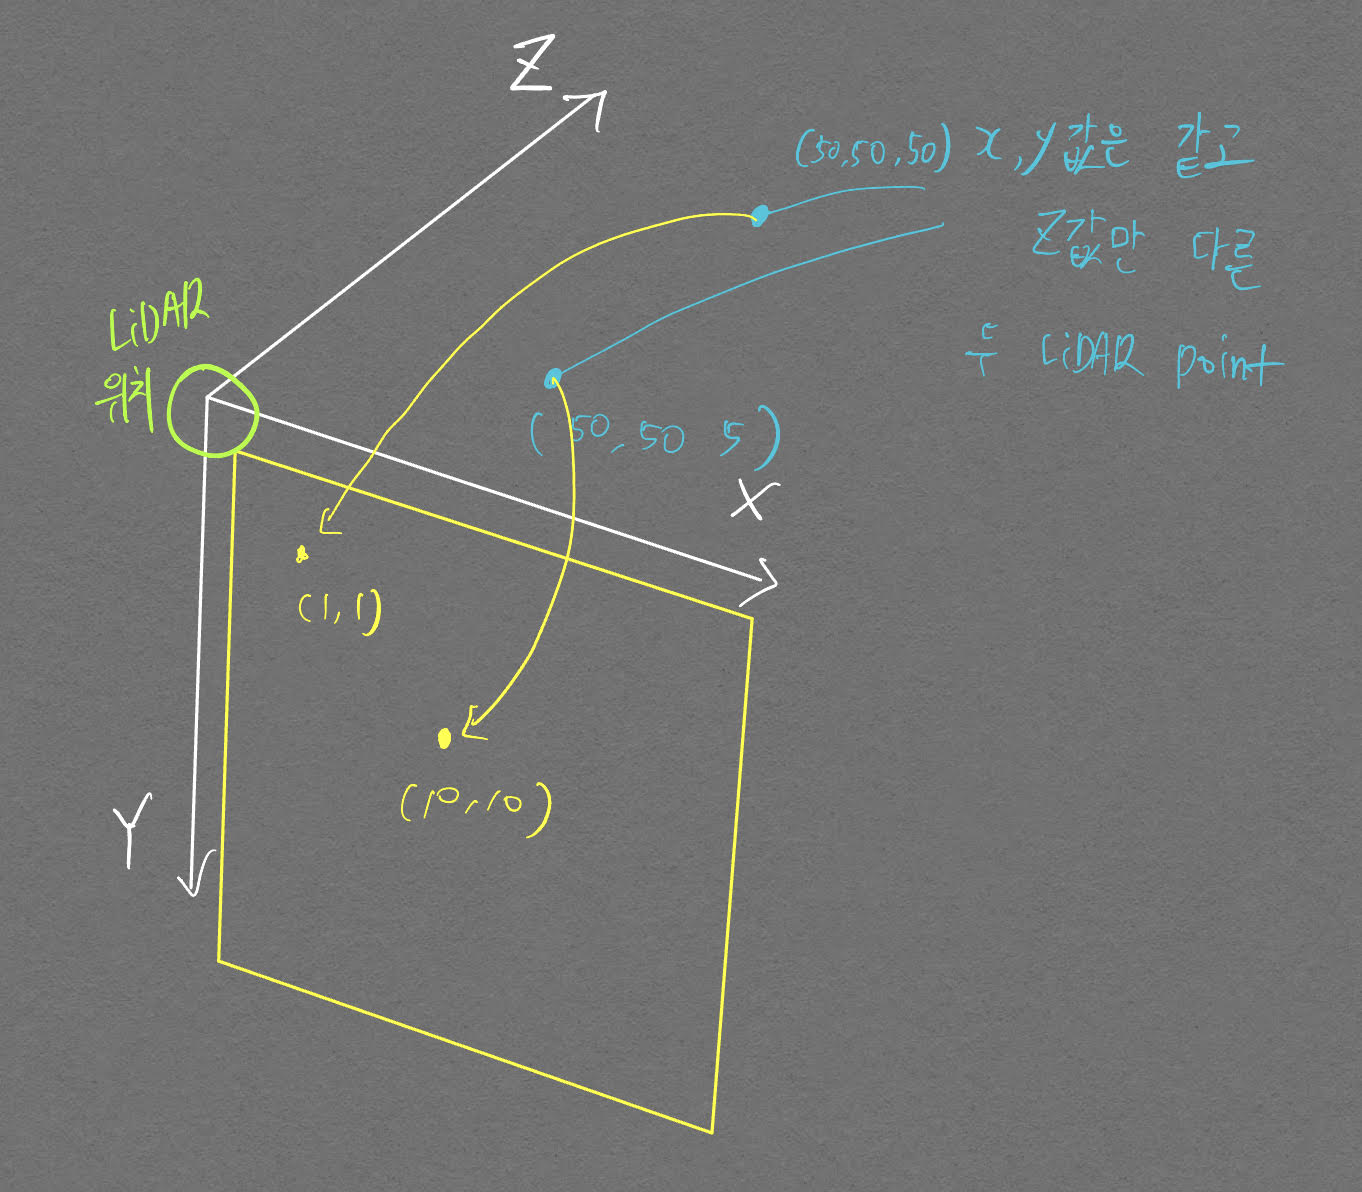 Z
(50,50,50) x,y값은 같고
Z값만 다른
두 LiDAR point
LiDAR
위치
(50,50 5)
X
(1,1)
(10,10)
Y